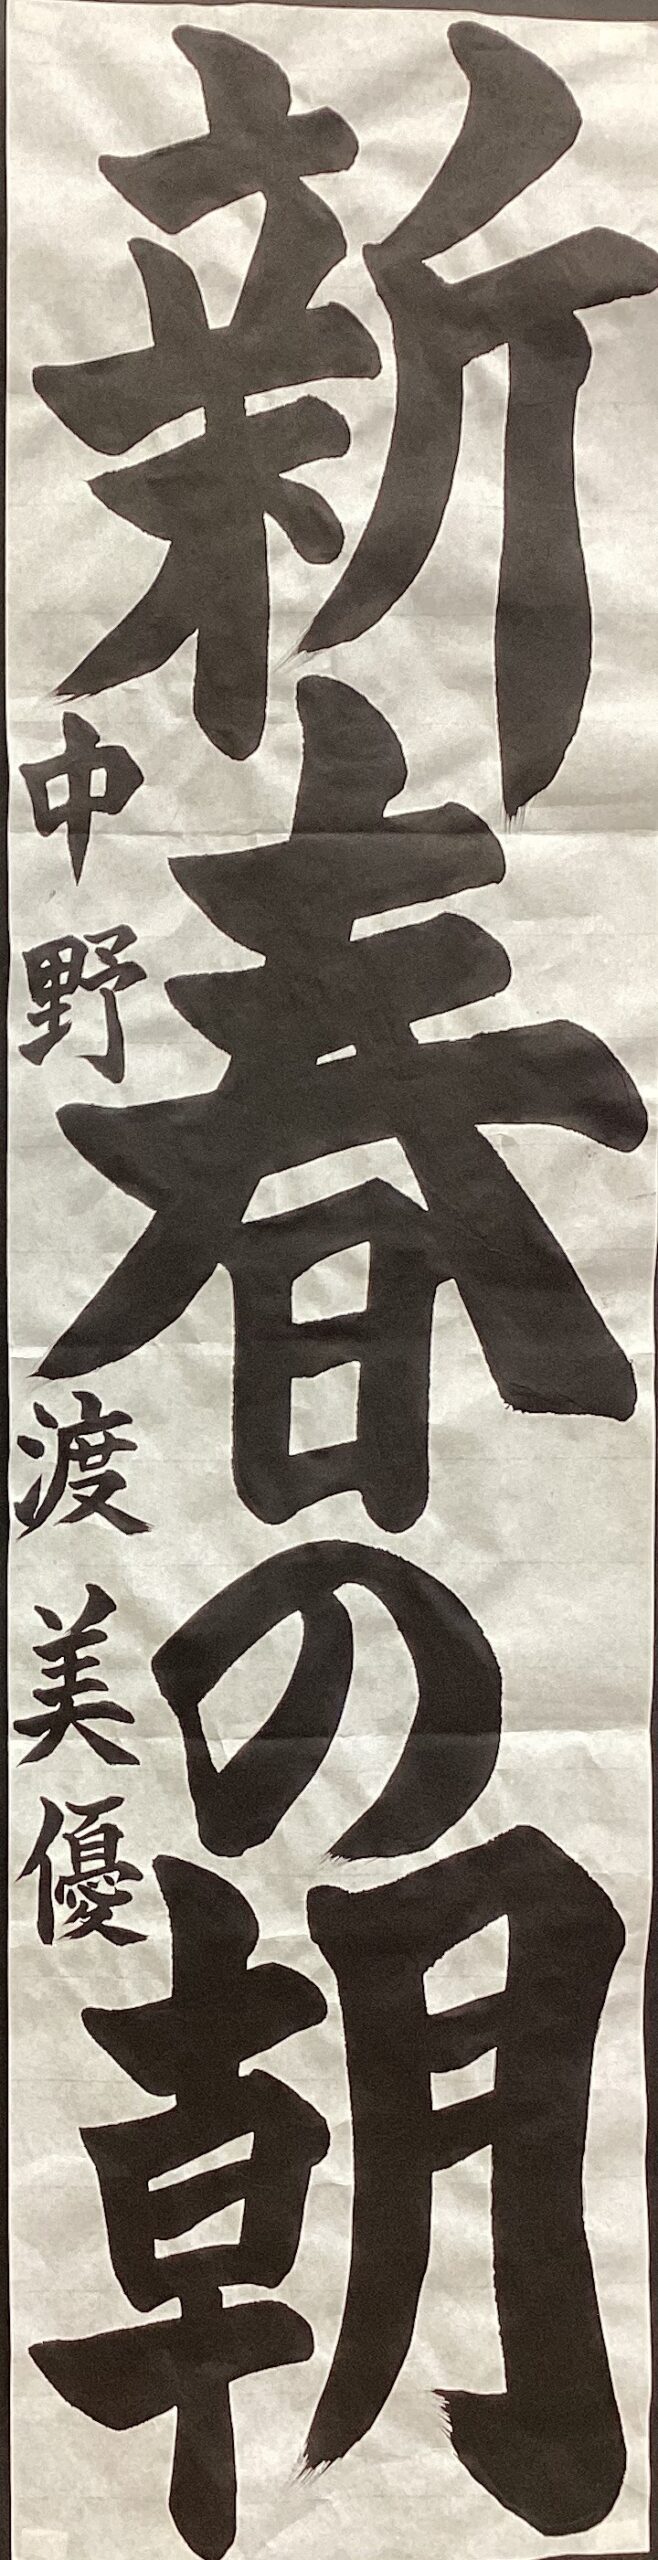 新春の朝
中野 渡美優